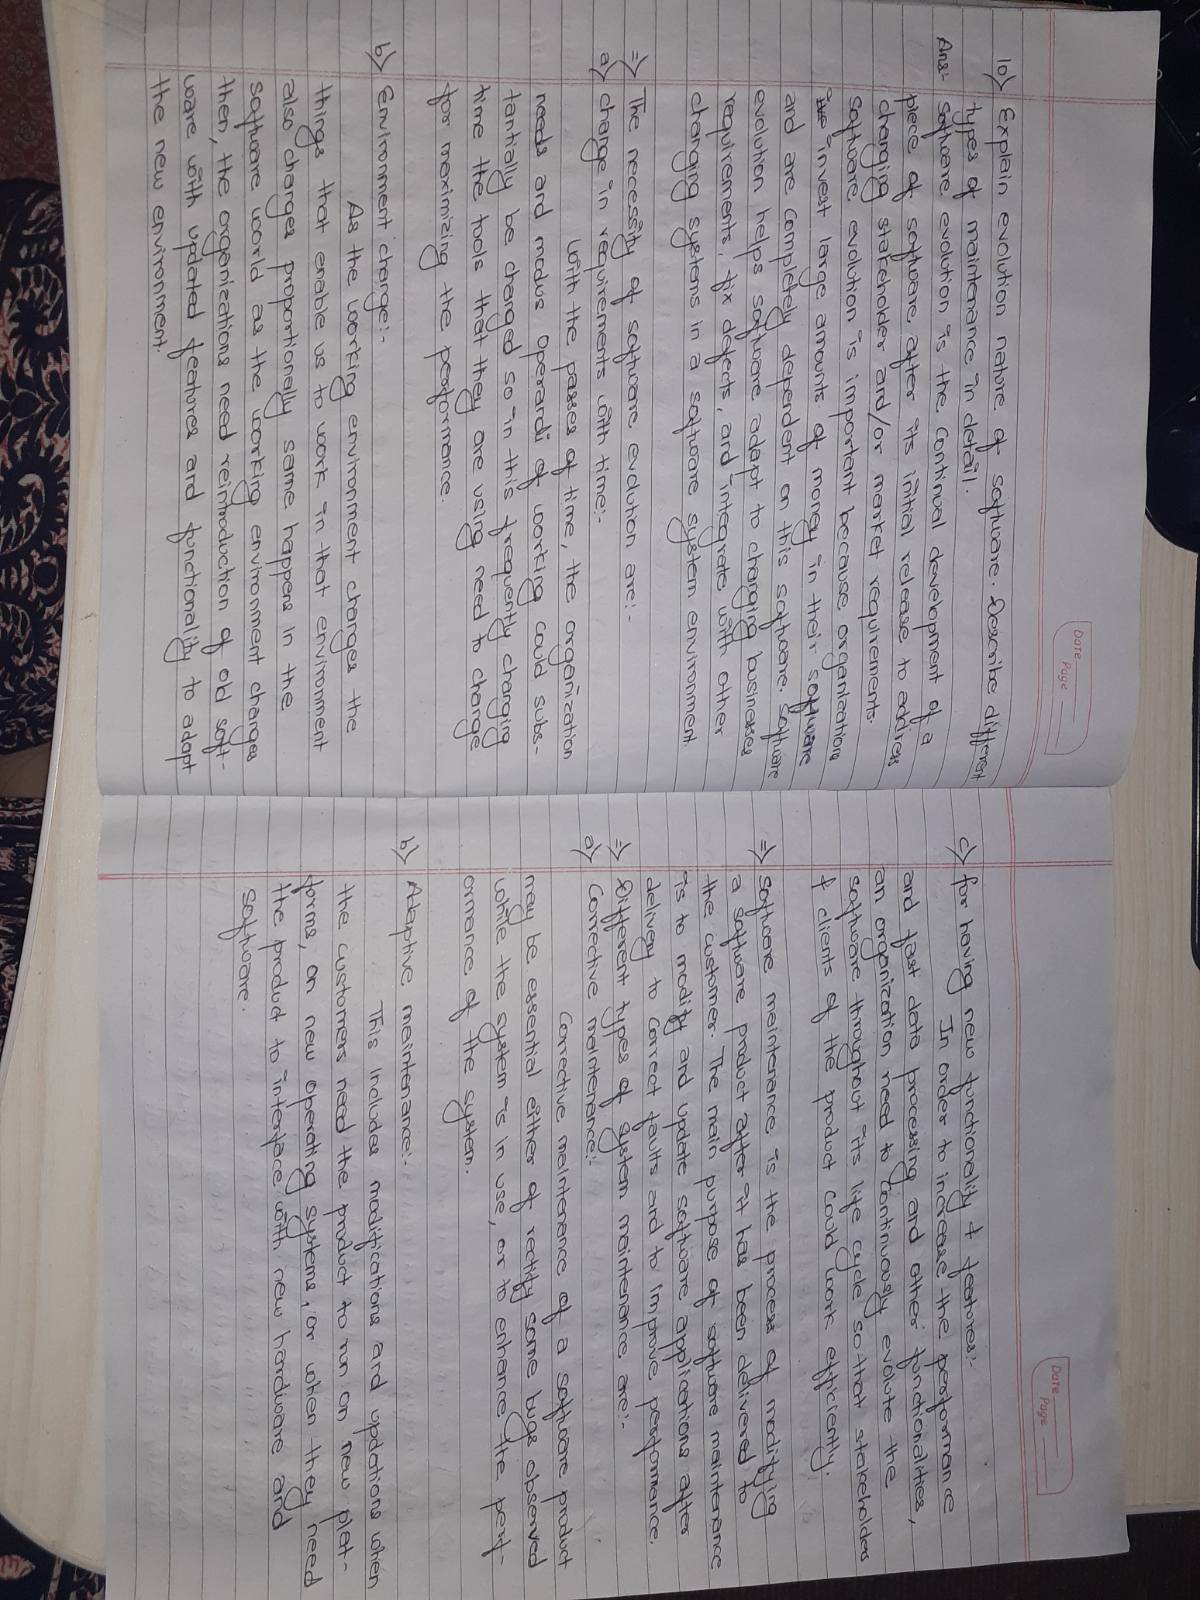 Date
Page
10) Explain evolution nature of software. Describe different
types of maintenance in detail.
Ans:- software evolution is the continual development of a
piece of software, after its initial release to address
changing stakeholder and/or market requirements.
software evolution is important because organizations
invest large amounts of money in their software
and are completely dependent on this software. software
evolution helps software adapt to changing businesses
requirements, fix defects, and integrate with other
changing systems in a software system environment
=> The necessity of software evolution are:-
a) change in requirements with time:-
With the passes of time, the organization
needs and modus operandi of working could subs-
tantially be changed so in this frequently changing
time the tools that they are using need to change
for maximizing the performance.
b) Environment change:-
As the working environment changes the
things that enable us to work in that environment
also changes proportionally same happens in the
software world as the working environment changes
then, the organizations need reintroduction of old soft-
ware with updated features and functionality to adapt
the new environment.
Date
Page
c) for having new functionality & features:-
In order to increase the performance
and fast data processing and other functionalities,
an organization need to continuously evolute the
software throughout its life cycle so that stakeholders
& clients of the product could work efficiently.
=> Software maintenance is the process of modifying
a software product after it has been delivered to
the customer. The main purpose of software maintenance
is to modify and update software applications after
delivery to correct faults and to improve performance.
=> Different types of system maintenance are:-
a) Corrective maintenance:-
Corrective maintenance of a software product
may be essential either of rectify some bugs observed
while the system is in use, or to enhance the perf-
ormance of the system.
b) Adaptive maintenance:-
This includes modifications and updations when
the customers need the product to run on new plat-
forms, on new operating systems, or when they need
the product to interface with new hardware and
software.